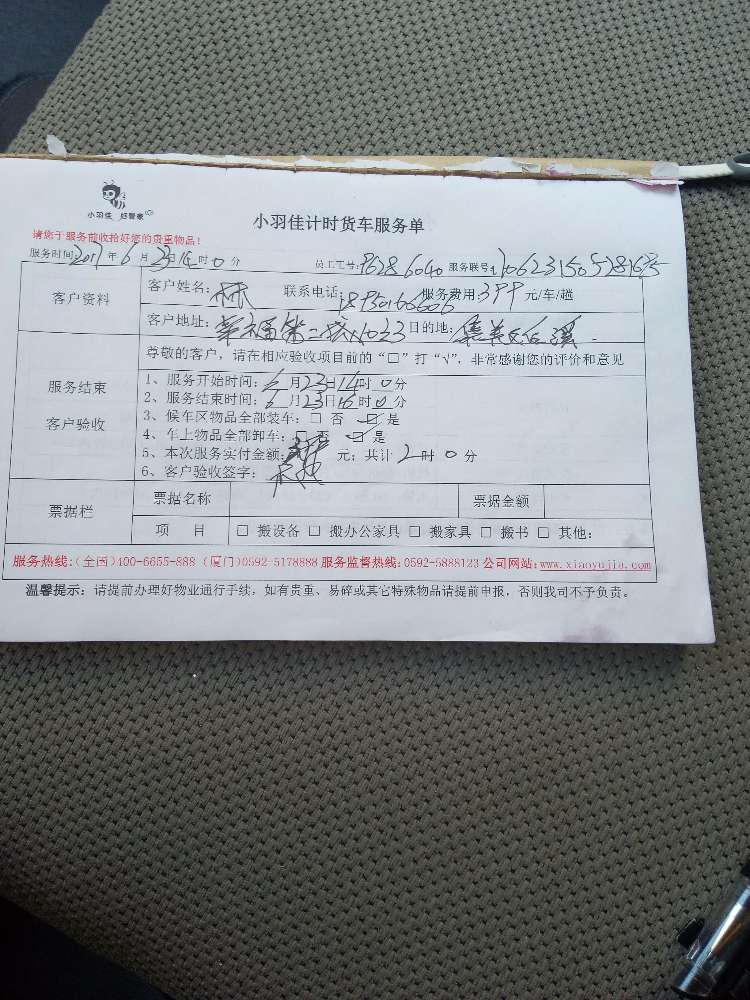 小羽佳 好管家
小羽佳计时货车服务单
请您于服务前收拾好您的贵重物品!
服务时间2017年6月23日14时0分 员工工号: 服务联号:
客户资料 客户姓名:林 联系电话: 服务费用:399元/车/趟
客户地址:幸福第二城 目的地:集美后溪
尊敬的客户,请在相应验收项目前的“□”打“√”,非常感谢您的评价和意见
服务结束
客户验收
1、服务开始时间:6月23日14时0分
2、服务结束时间:6月23日16时0分
3、候车区物品全部装车:□ 否 ☑ 是
4、车上物品全部卸车:□ 否 ☑ 是
5、本次服务实付金额: 元;共计2时0分
6、客户验收签字:
票据栏 票据名称 票据金额
项 目 □ 搬设备 □ 搬办公家具 □ 搬家具 □ 搬书 □ 其他:
服务热线:(全国)400-6655-888 (厦门)0592-5178888 服务监督热线:0592-5888123 公司网站:www.xiaoyujia.com
温馨提示:请提前办理好物业通行手续,如有贵重、易碎或其它特殊物品请提前申报,否则我司不予负责。